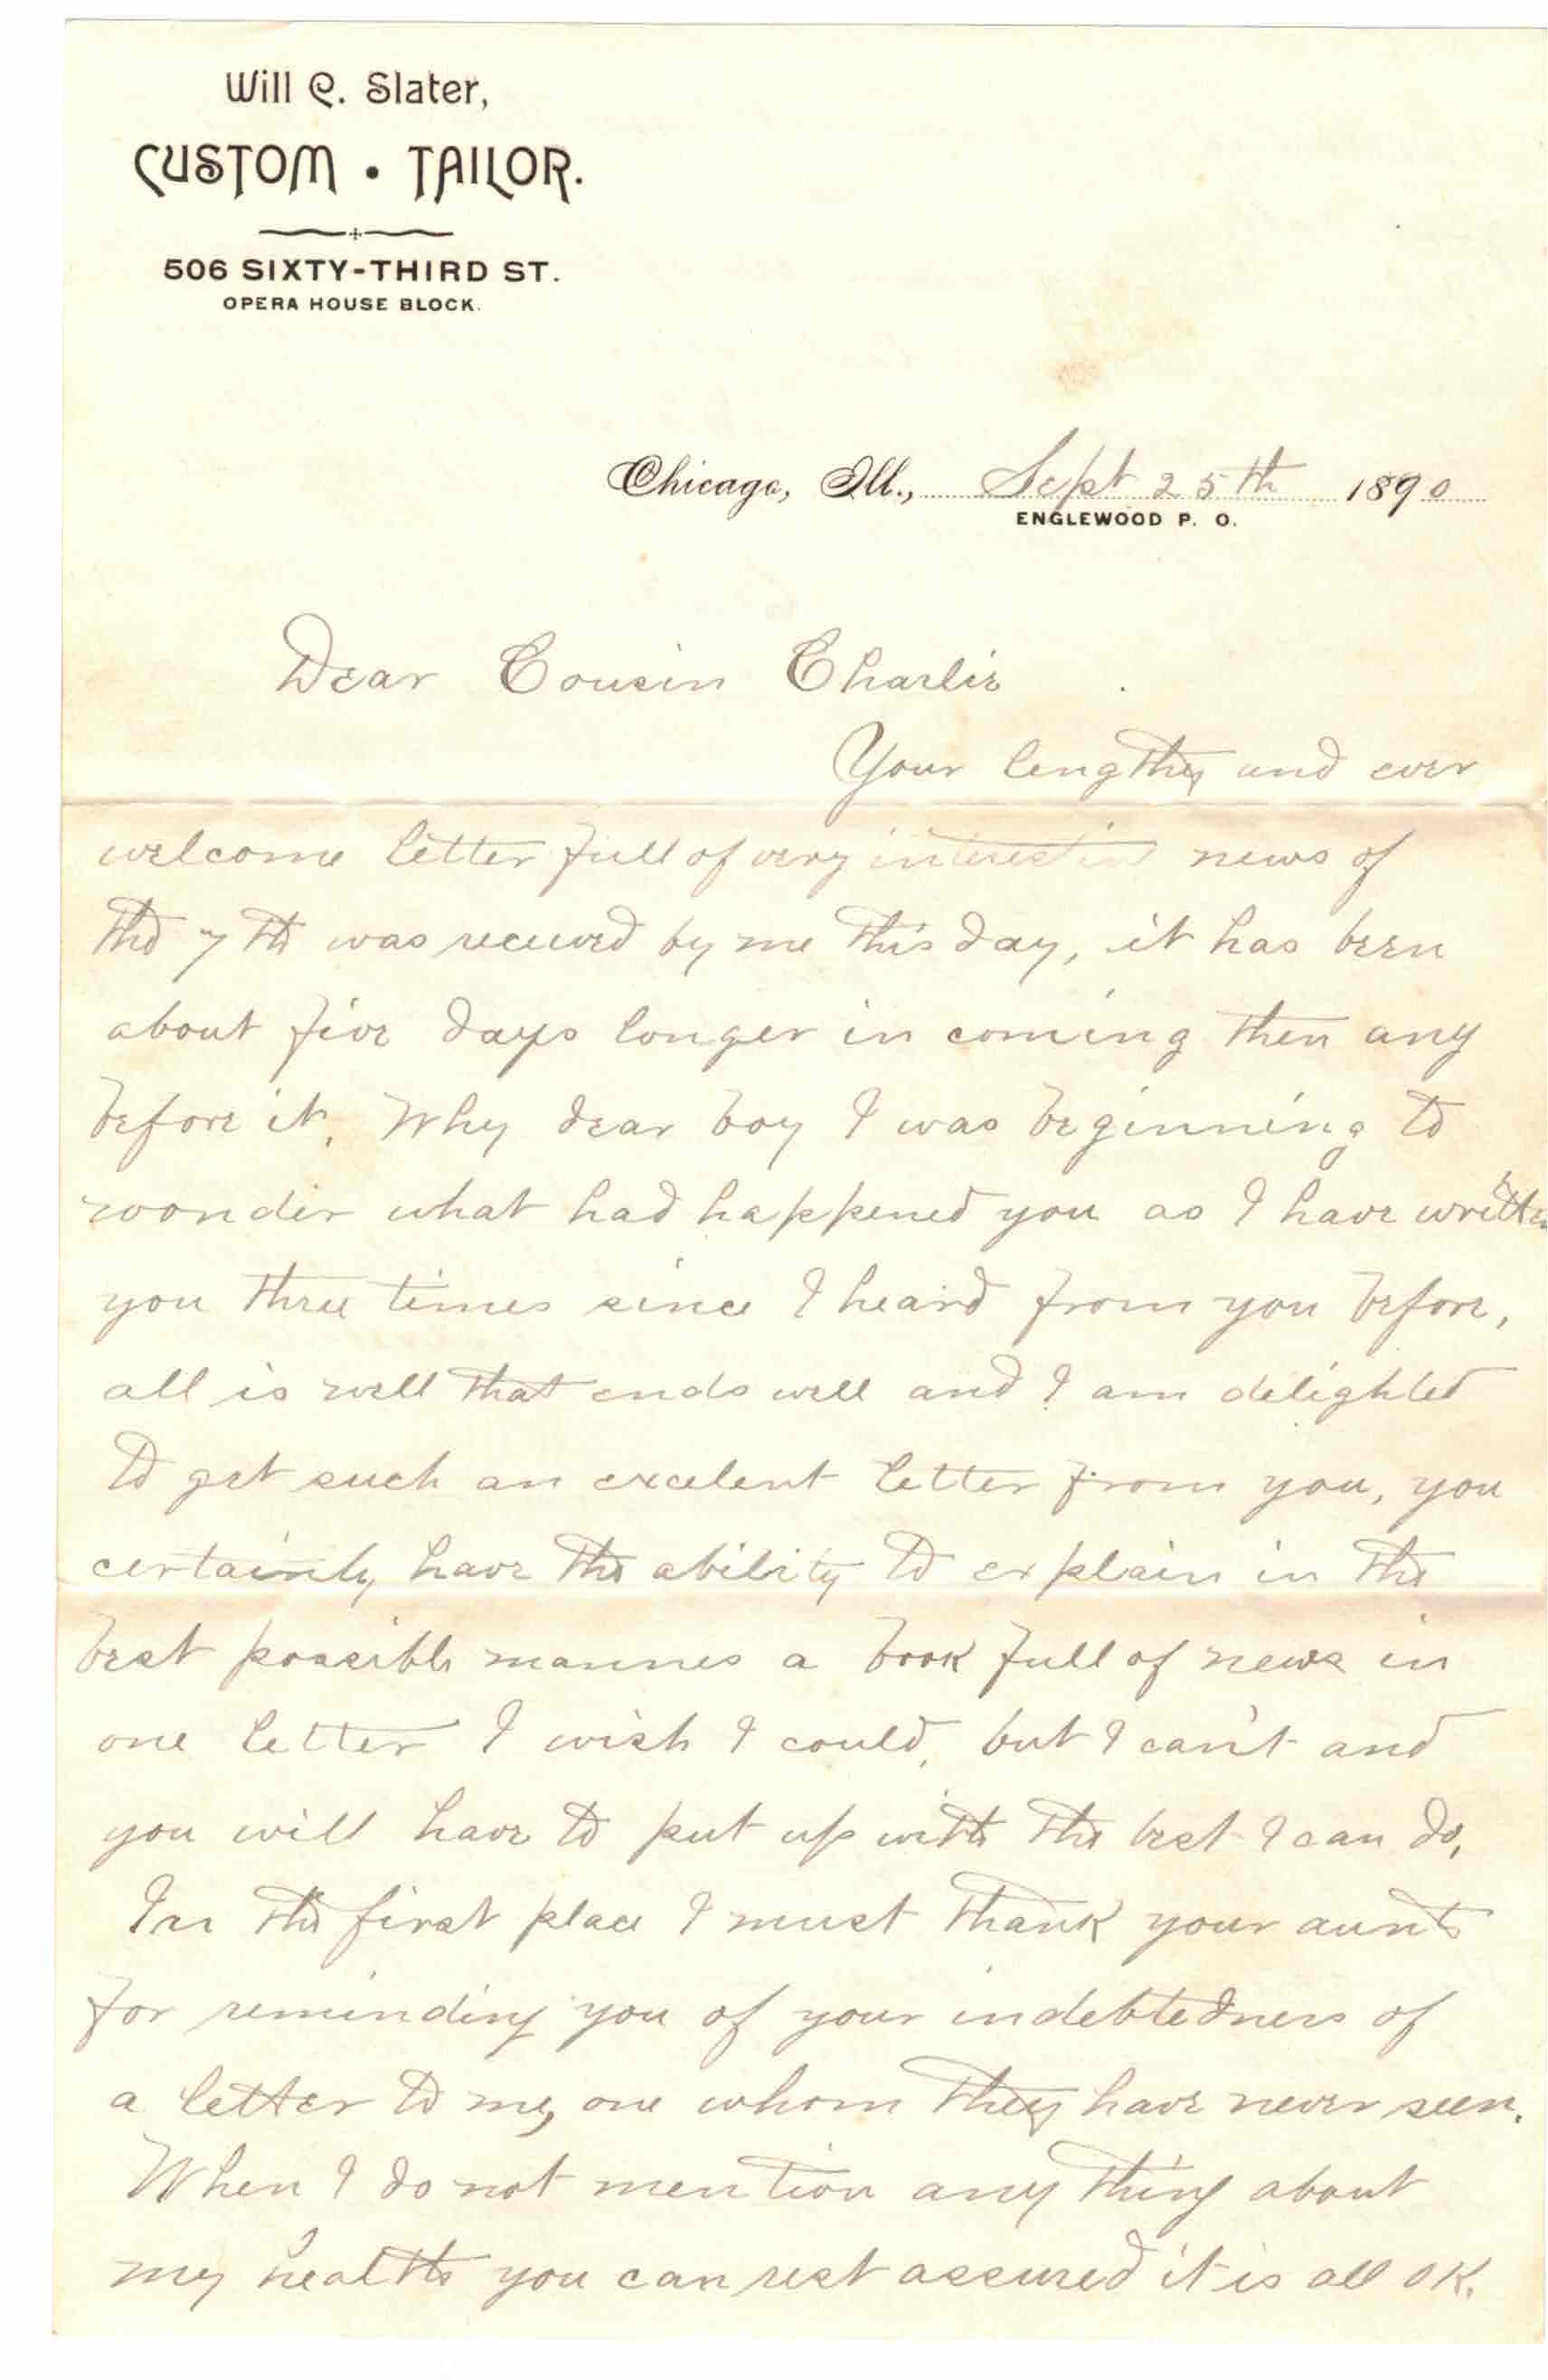 Will C. Slater,
CUSTOM • TAILOR.
506 SIXTY-THIRD ST.
OPERA HOUSE BLOCK.
Chicago, Ill., Sept 25th 1890
ENGLEWOOD P. O.
Dear Cousin Charlie
Your lengthy and ever
welcome letter full of very interestin news of
the 7th was received by me this day, it has been
about five days longer in coming then any
before it. Why dear boy I was beginning to
wonder what had happened you as I have written
you three times since I heard from you before,
all is well that ends well and I am delighted
to get such an excelent letter from you, you
certainly have the ability to explain in the
best possible mannes a book full of news in
one letter I wish I could, but I can't and
you will have to put up with the best I can do,
In the first place I must thank your aunts
for reminding you of your indebtedness of
a letter to me, one whom they have never seen.
When I do not mention any thing about
my health you can rest assured it is all OK.